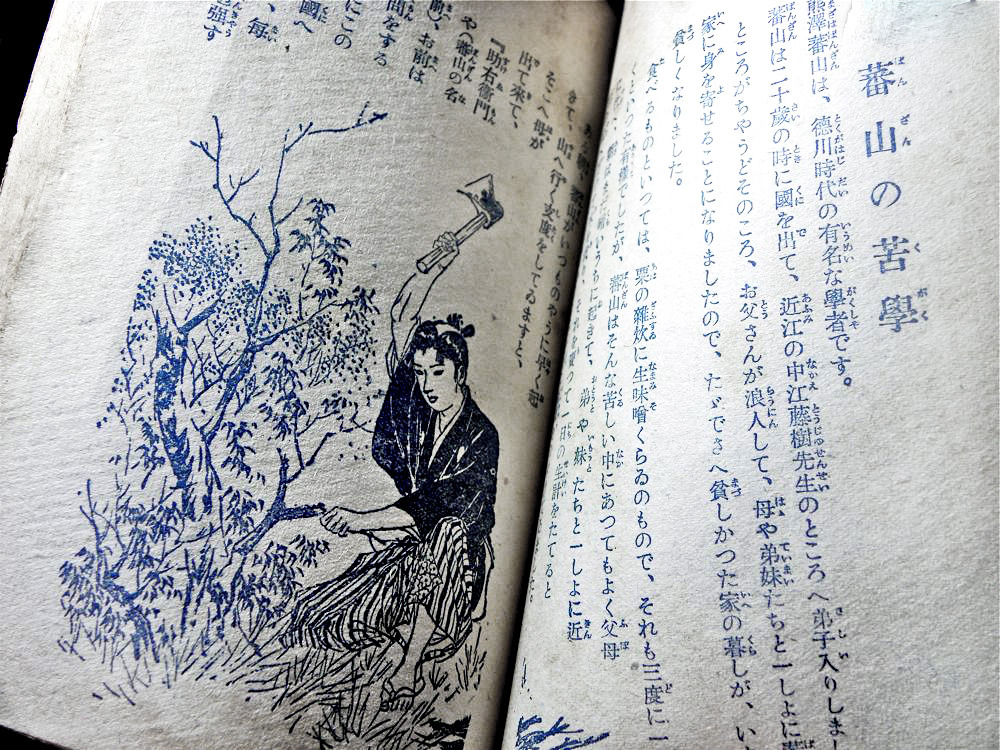 蕃山の苦學
熊澤蕃山は、德川時代の有名な學者です。
蕃山は二十歳の時に國を出て、近江の中江藤樹先生のところへ弟子入りしま
ところがちやうどそのころ、お父さんが浪人して、母や弟妹たちと一しよに
家に身を寄せることになりましたので、たゞでさへ貧しかつた家の暮しが、い
貧しくなりました。
食べるものといつては、粟の雜炊に生味噌くらゐのもので、それも三度に一
といつた有樣でしたが、蕃山はそんな苦しい中にあつてもよく父母
うちに起きて、弟や妹たちと一しよに近
つて一日の生計をたてると
蕃山がいつものやうに早く起
きて、山へ行く支度をしてゐますと、
そこへ母が
出て來て、
『助右衞門
や（蕃山の名
前）、お前は
問をする
にこの
國へ
、每
强す